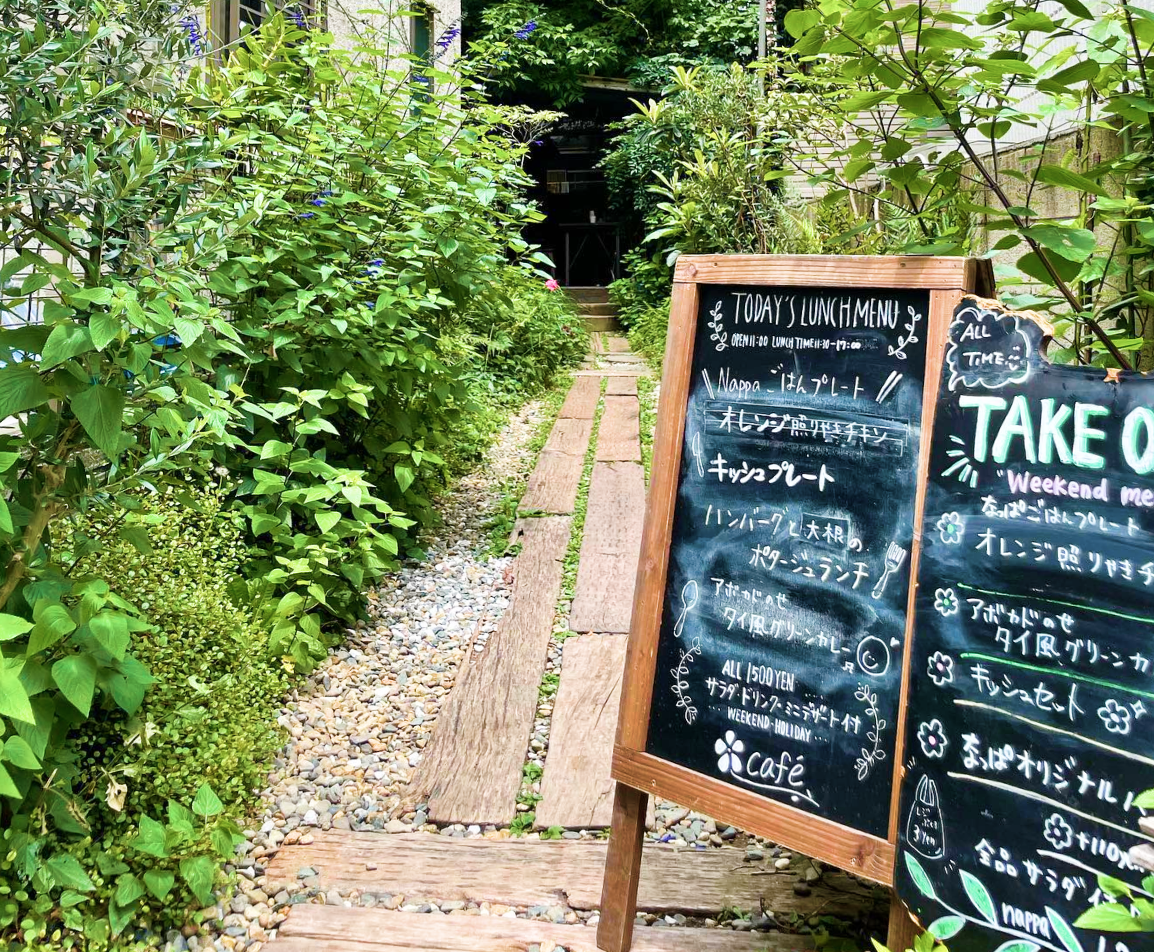 TODAY'S LUNCH MENU
OPEN 11:00 LUNCH TIME 11:30-17:00
Nappaごはんプレート
オレンジ照りやきチキン
キッシュプレート
ハンバーグと大根の
ポタージュランチ
アボカドのせ
タイ風グリーンカレー
ALL 1500YEN
サラダ・ドリンク・ミニデザート付
WEEKEND・HOLIDAY
café
ALL
TIME
TAKE O
"Weekend me
なっぱごはんプレート
オレンジ照りやきチ
アボカドのせ
タイ風グリーンカ
キッシュセット
なっぱオリジナル
レジ
ぶくろ
+110
全品サラダ
nappa